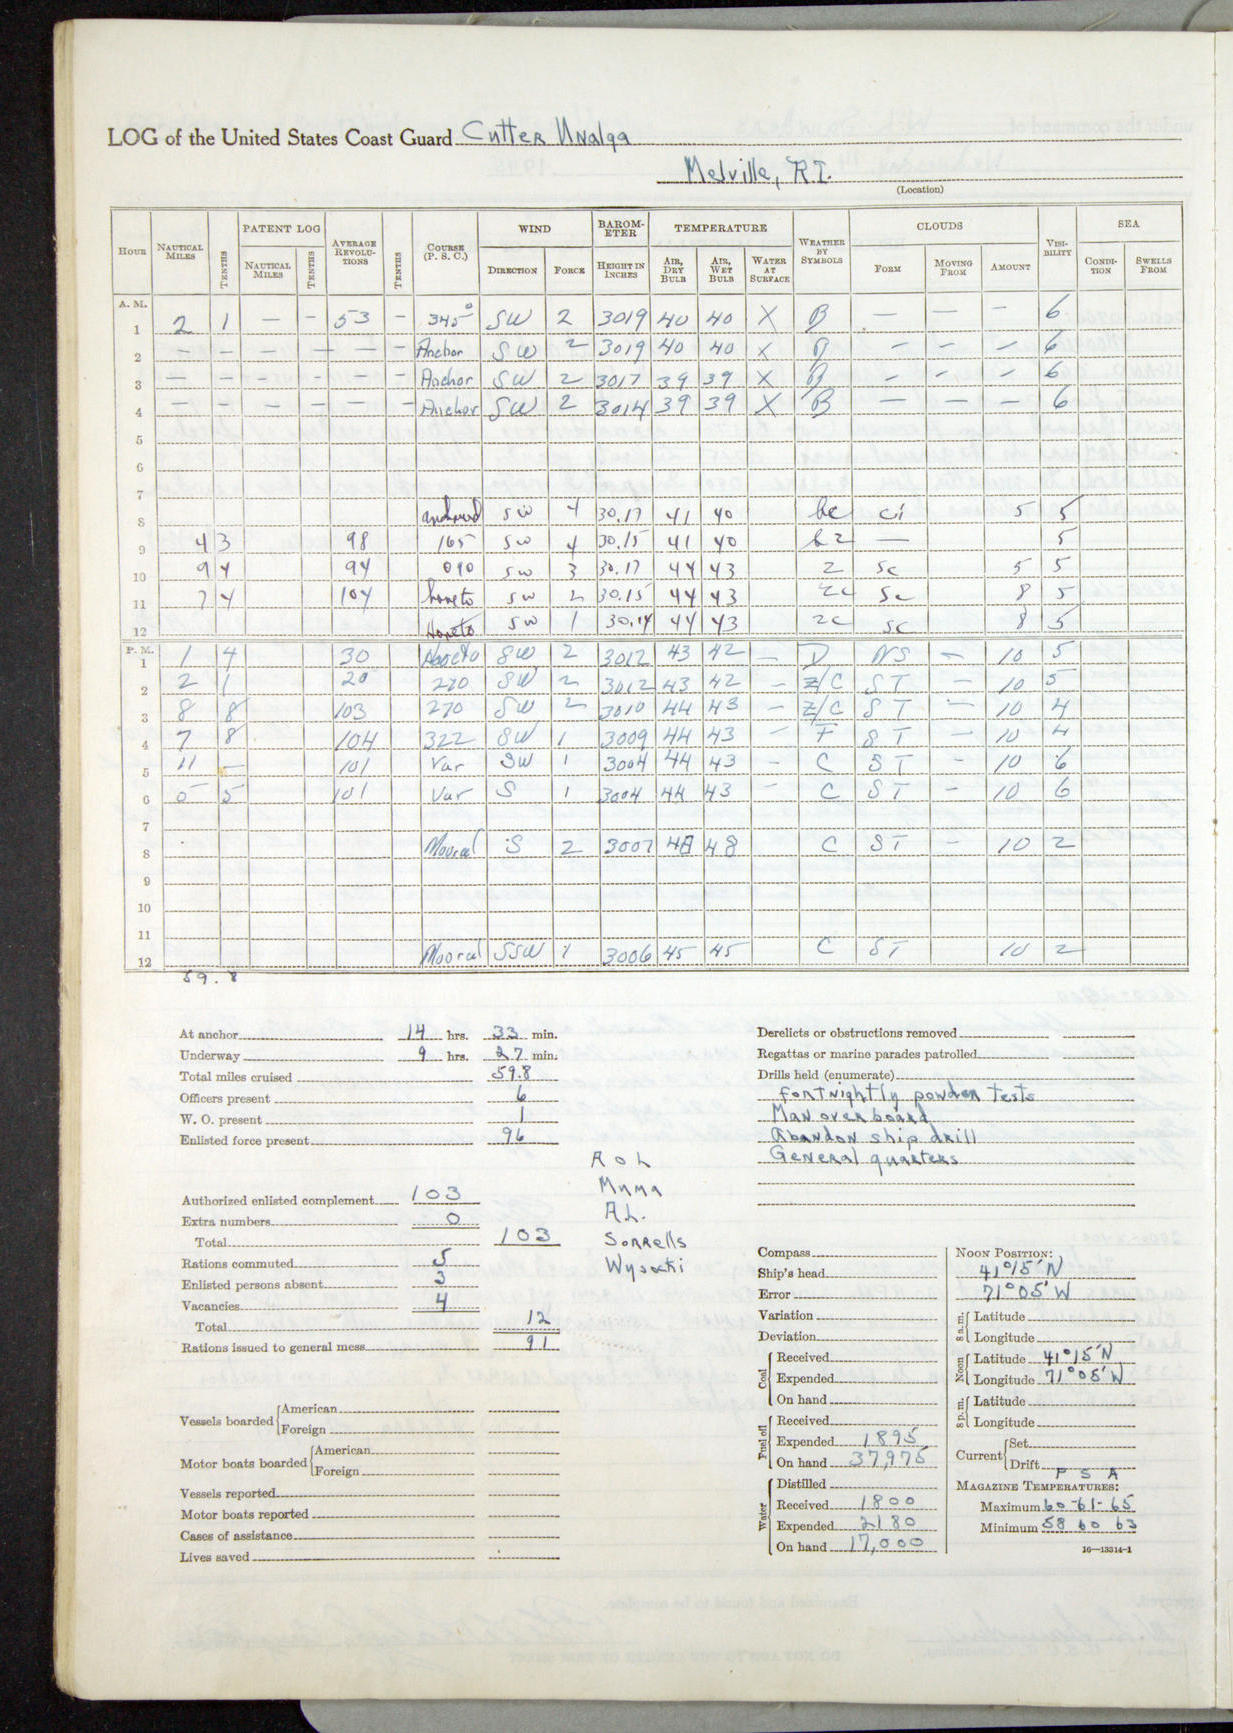 LOG of the United States Coast Guard Cutter Unalga
Melville, R.I.
(Location)
HOUR NAUTICAL MILES TENTHS PATENT LOG NAUTICAL MILES TENTHS AVERAGE REVOLUTIONS TENTHS COURSE (P. S. C.) WIND DIRECTION FORCE BAROMETER HEIGHT IN INCHES TEMPERATURE AIR, DRY BULB AIR, WET BULB WATER AT SURFACE WEATHER BY SYMBOLS CLOUDS FORM MOVING FROM AMOUNT VISIBILITY SEA CONDITION SWELLS FROM
A. M.
1 2 1 — - 53 - 345° SW 2 3019 40 40 X B — — — 6
2 - - - - - - Anchor SW 2 3019 40 40 X B - - - 6
3 - - - - - - Anchor SW 2 3017 39 39 X B - - - 6
4 - - - - - - - Anchor SW 2 3014 39 39 X B — — — 6
5
6
7
8 anchored SW 4 30.17 41 40 bc ci 5 5
9 4 3 98 165 SW 4 30.15 41 40 bz — 5
10 9 4 94 090 SW 3 30.17 44 43 z sc 5 5
11 7 4 104 SW 2 30.15 44 43 zc sc 8 5
12 SW 1 30.14 44 43 zc sc 8 5
P. M.
1 1 4 30 SW 2 3012 43 42 — D NS — 10 5
2 2 1 20 270 SW 2 3012 43 42 - Z/C ST - 10 5
3 8 8 103 270 SW 2 3010 44 43 - Z/C ST - 10 4
4 7 8 104 322 SW 1 3009 44 43 - F ST - 10 4
5 11 — 101 Var SW 1 3004 44 43 - C ST - 10 6
6 5 5 101 Var S 1 3004 44 43 - C ST - 10 6
7
8 Moored S 2 3007 48 48 C ST - 10 2
9
10
11
12 Moored SSW 1 3006 45 45 C ST 10 2
59.8
At anchor 14 hrs. 33 min.
Underway 9 hrs. 27 min.
Total miles cruised 59.8
Officers present 6
W. O. present 1
Enlisted force present 96
Authorized enlisted complement 103
Extra numbers 0
Total 103
Rations commuted 5
Enlisted persons absent 3
Vacancies 4
Total 12
Rations issued to general mess 91
A O L
Muma
A.L.
Sorrells
Wysocki
Vessels boarded American
Foreign
Motor boats boarded American
Foreign
Vessels reported
Motor boats reported
Cases of assistance
Lives saved
Derelicts or obstructions removed
Regattas or marine parades patrolled
Drills held (enumerate)
fortnightly powder tests
Man overboard
Abandon ship drill
General quarters
Compass
Ship's head
Error
Variation
Deviation
Coal Received
Expended
On hand
Fuel oil Received
Expended 1895
On hand 37,975
Water Distilled
Received 1800
Expended 2180
On hand 17,000
NOON POSITION:
41°15'N
71°05'W
8 a.m. Latitude
Longitude
Noon Latitude 41°15'N
Longitude 71°05'W
8 p.m. Latitude
Longitude
Current Set
Drift
P S A
MAGAZINE TEMPERATURES:
Maximum 60-61-65
Minimum 58 60 63
16—13314-1